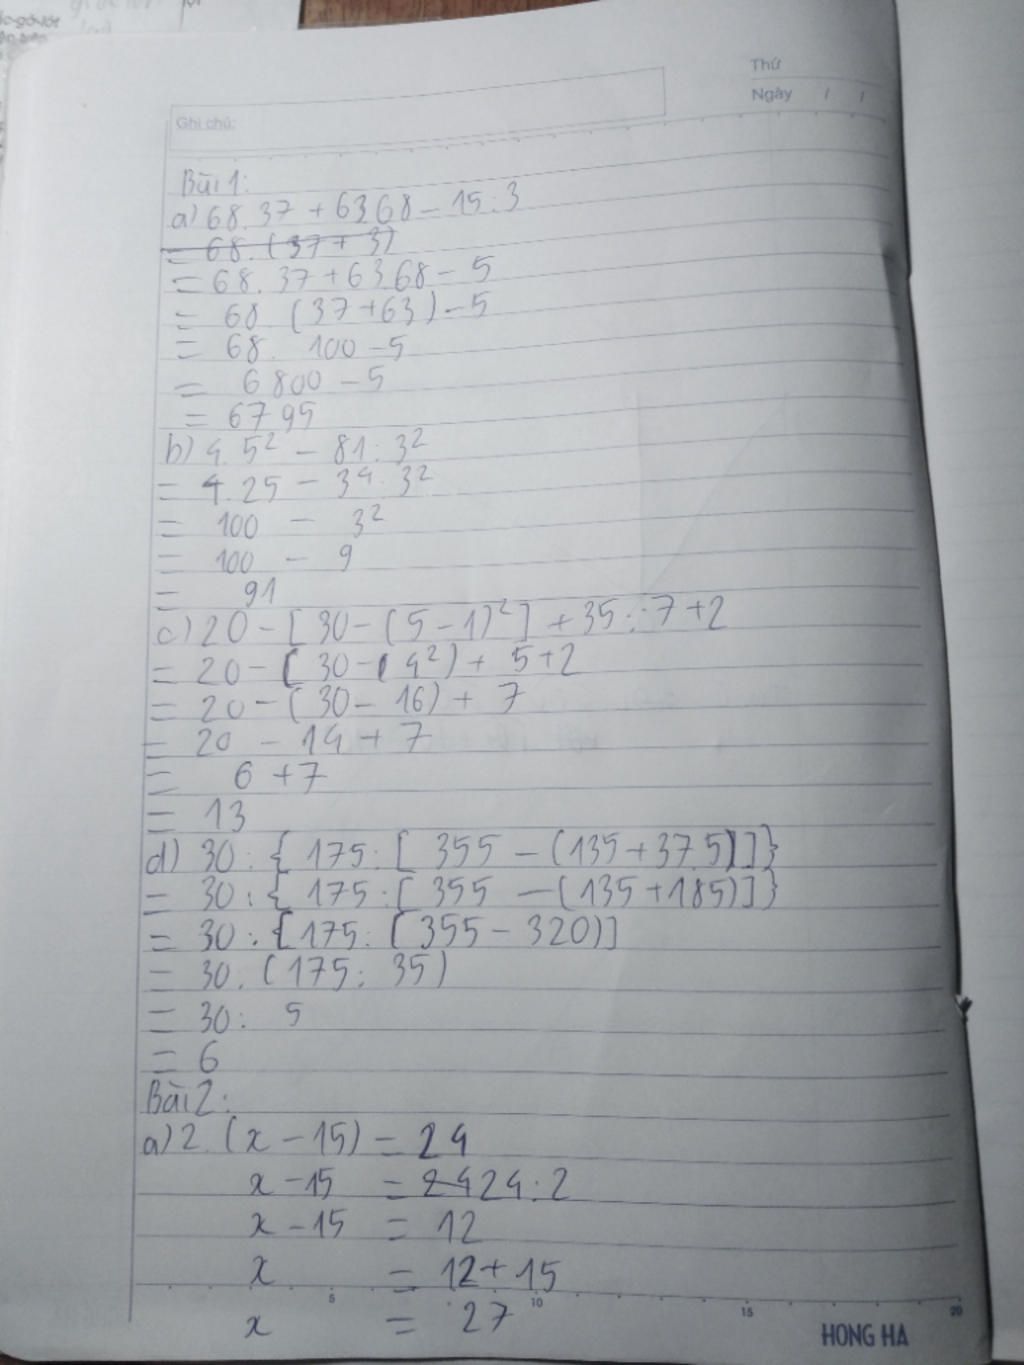 Thứ
Ngày / /
Ghi chú:
Bài 1:
a) 68.37 + 63 68 - 15:3
= 68.(37 + 3)
= 68.37 + 63 68 - 5
= 68 (37 + 63) - 5
= 68. 100 - 5
= 6800 - 5
= 6795
b) 4.5² - 81:3²
= 4.25 - 3⁴.3²
= 100 - 3²
= 100 - 9
= 91
c) 20 - [30 - (5 - 1)²] + 35:7 + 2
= 20 - (30 - (4²) + 5 + 2
= 20 - (30 - 16) + 7
= 20 - 14 + 7
= 6 + 7
= 13
d) 30:{175:[355 - (135 + 37.5)]}
= 30:{175:[355 - (135 + 185)]}
= 30:[175:(355 - 320)]
= 30:(175:35)
= 30: 5
= 6
Bài 2:
a) 2.(x - 15) = 24
x - 15 = 24 24:2
x - 15 = 12
x = 12 + 15
5 10 15 20
x = 27
HONG HA